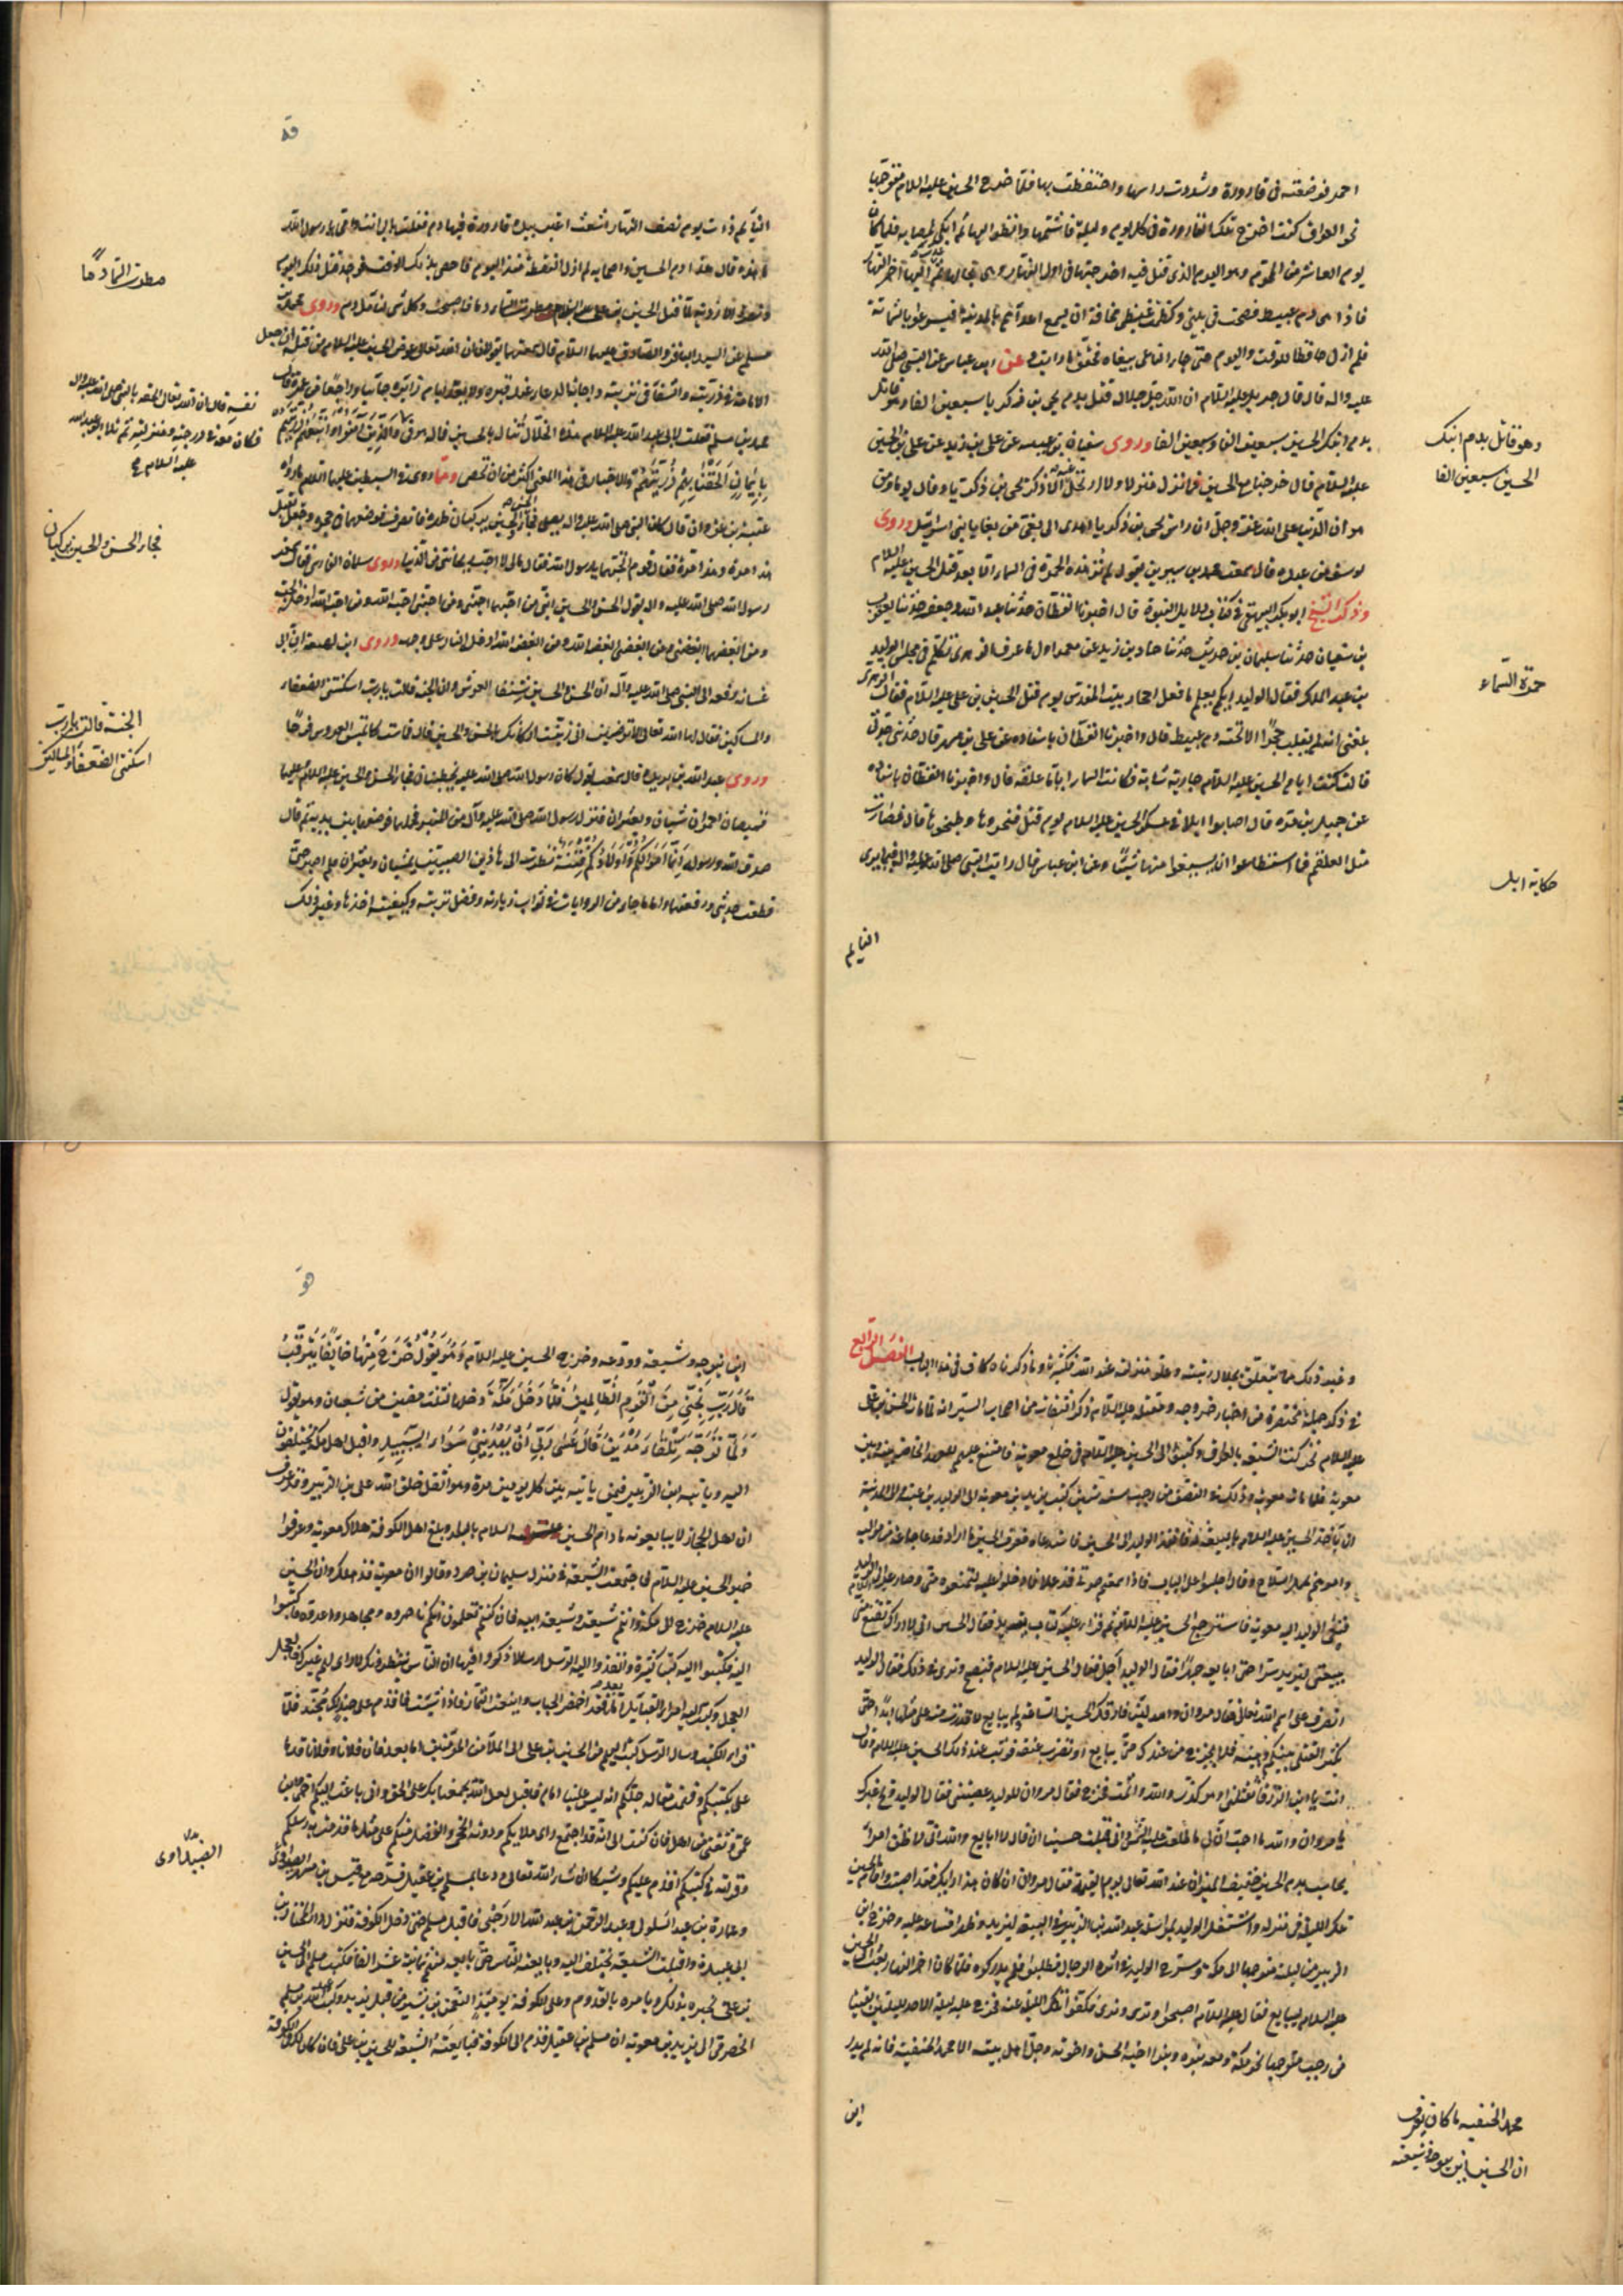 احمر فوضعته في قارورة وشددت راسها واحتفظت بها فلما خرج الحسين عليه السلام متوجها
نحو العراق كنت اخرج تلك القارورة في كل يوم وليلة فاشتمها وانظر اليها ثم ابكي لمصابه فلما كان
يوم العاشر من المحرم وهو اليوم الذي قتل فيه اخرجتها في اول النهار وهي بحالها ثم عدت اليها آخر النهار
فاذا هي دم عبيط فصحت في بيتي وكظمت غيظي مخافة ان يسمع اعدآئهم بالمدينة فيسرعوا بالشماتة
فلم ازل حافظا للوقت واليوم حتى جاء الناعي ينعاه فحقق ما رايت وعن ابن عباس عن النبي صلى الله
عليه واله قال قال جبريل عليه السلام ان الله جل جلاله قتل بدم يحيى بن زكريا سبعين الفا وهو قاتل
بدم ابنك الحسين سبعين الفا وسبعين الفا وروى سفيان بن عيينه عن علي بن زيد عن علي بن الحسين
عليه السلام قال خرجنا مع الحسين فما نزل منزلا ولا ارتحل عنه الا ذكر يحيى بن زكريا وقال يوما من
هوان الدنيا على الله عز وجل ان راس يحيى بن زكريا اهدى الى بغى من بغايا بني اسرائيل وروى
يوسف بن عبده قال سمعت محمد بن سيرين يقول لم تر هذه الحمرة في السمآء الا بعد قتل الحسين عليه السلام
وذكر الشيخ ابو بكر البيهقي في كتاب دلايل النبوة قال اخبرنا القطان حدثنا عبد الله بن جعفر حدثنا يعقوب
بن سفيان حدثنا سليمان بن حرب حدثنا حماد بن زيد عن معمر اول ما عرف الزهرى تكلم في مجلس الوليد
بن عبد الملك فقال الوليد ايكم يعلم ما فعل احجار بيت المقدس يوم قتل الحسين بن علي عليه السلام فقال الزهرى
بلغني انه لم يقلب حجرًا الا تحته دم عبيط قال واخبرنا القطان باسناده عن علي بن مسهر قال حدثتني جدتي
قالت كنت ايام الحسين عليه السلام جارية شابة فكانت السماء اياما علقه قال واخبرنا القطان باسناده
عن جميل بن مره قال اصابوا ابلا في عسكر الحسين عليه السلام يوم قتل فنحروها وطبخوها قال فصارت
مثل العلقم فما استطاعوا ان يسيغوا منها شيئًا وعن ابن عباس قال رايت النبي صلى الله عليه واله فيما يرى
النايم
وهو قاتل بدم ابنك
الحسين سبعين الفا
حمرة السماء
حكاية ابل
النايم ذات يوم نصف النهار اشعث اغبر بيده قارورة فيها دم فقلت بابي انت وامي يا رسول الله
ما هذه قال هذا دم الحسين واصحابه لم ازل التقطه منذ اليوم فاحصى ذلك الوقت فوجد قتل ذلك اليوم
ونضرة الازدية لما قتل الحسين بن علي عليه السلام مطرت السماء دما فاصبحت وكل شئ لنا ملأ دم وروى محمد بن
مسلم عن السيد الباقر والصادق عليهما السلام قال سمعتهما يقولان ان الله تعالى عوض الحسين عليه السلام من قتله ان جعل
الامامة في ذريته والشفآء في تربته واجابة الدعاء عند قبره ولا يعد ايام زائره جائيا وراجعًا من عمره قال
محمد بن مسلم فقلت لابي عبد الله عليه السلام هذه الخلال تنال بالحسين فماله هو
بايمان الحقنا بهم ذريتهم والاخبار في هذا المعنى اكثر من ان تحصى ومما روى في السبطين عليهما السلام ما رواه
عتبة بن غزوان قال كان النبي صلى الله عليه واله يصلي فجاء الحسن والحسين يركبان ظهره فانصرف فوضعهما في حجره وجعل يقبل
هذا مرة وهذا مرة فقال قوم اتحبهما يا رسول الله فقال مالي لا احب ريحانتي من الدنيا وروى سلمان الفارسي قال سمعت
رسول الله صلى الله عليه واله يقول الحسن والحسين ابني من احبهما احبني ومن احبني احبه الله ومن احبه الله ادخله الجنة
ومن ابغضهما ابغضني ومن ابغضني ابغضه الله ومن ابغضه الله ادخله النار على وجهه وروى ابن لهيعة ابى
غسانه رفعه الى النبي صلى الله عليه وآله ان الحسن والحسين شنفا العرش وان الجنة قالت يا رب اسكنتني الضعفاء
والمساكين فقال لها الله تعالى الا ترضين انى زينت اركانك بالحسن والحسين قال فماست كما تميس العروس فرحًا
وروى عبد الله بن بريده قال سمعت ابى يقول كان رسول الله صلى الله عليه يخطبنا فجاء الحسن والحسين عليهما السلام عليهما
قميصان احمران يمشيان ويعثران فنزل رسول الله صلى الله عليه وآله من المنبر فحملهما فوضعهما بين يديه ثم قال
صدق الله ورسوله إنما اموالكم واولادكم فتنة نظرت الى هاذين الصبيين يمشيان ويعثران فلم اصبر حتى
قطعت حديثي ورفعتهما واما ما جاء من الروايات في ثواب زيارته وفضل تربته وكيفية اخذها وغير ذلك
مطرت السماء دمًا
نفسه قال ان الله تعالى الحقه بالنبي صلى الله عليه واله
فكان معه في درجته ومنزلته ثم تلا ابو عبد الله
عليه السلام
فجاء الحسن والحسين يركبان
الجنة قالت يا رب
اسكنتني الضعفاء والمساكين
وغير ذلك مما يتعلق بجلال رتبته وعلو منزلته عند الله فكثيرة وما ذكرناه كاف في هذا الباب الفصل الرابع
في ذكر جملة مختصرة من اخبار خروجه ومقتله عليه السلام ذكر الثقات من اصحاب السير انه لما مات الحسن بن علي
عليه السلام تحركت الشيعة بالعراق وكتبوا الى الحسين عليه السلام في خلع معوية فامتنع عليهم للعهد الحاصل بينه وبين
معوية فلما مات معوية وذلك في النصف من رجب سنة ستين كتب يزيد بن معوية الى الوليد بن عتبة والى المدينة
ان ياخذ الحسين عليه السلام بالبيعة له فانفذ الوليد الى الحسين فاستدعاه فعرف الحسين ما اراد فدعا جماعة من مواليه
وامرهم بحمل السلاح وقال اجلسوا على الباب فاذا سمعتم صوتي قد علا فادخلوا عليه لتمنعوه مني وصار عليه السلام الى الوليد
فنعى الوليد اليه معوية فاسترجع الحسين عليه السلام ثم قرا عليه كتاب يزيد فقال الحسين اني لا اراك تقنع مني
ببيعتي ليزيد سرا حتى ابايعه جهرًا فقال الوليد اجل فقال الحسين عليه السلام فتصبح وترى في ذلك فقال الوليد
انصرف على اسم الله تعالى فقال مروان والله لئن فارقك الحسين الساعة ولم يبايع لا قدرت منه على مثلها ابدًا حتى
تكثر القتلى بينكم وبينه فلا يخرج من عندك حتى يبايع أو تضرب عنقه فوثب عند ذلك الحسين عليه السلام وقال
انت يا ابن الزرقآء تقتلني او هو كذبت والله واثمت فخرج فقال مروان للوليد عصيتني فقال الوليد ويح غيرك
يا مروان والله ما احب ان لي ما طلعت عليه الشمس واني قتلت حسينا ان قال لا ابايع والله اني لا ظن امرأ
يحاسب بدم الحسين خفيف الميزان عند الله تعالى يوم القيمة فقال مروان ان كان هذا رايك فقد اصبت واقام الحسين
تلك الليلة في منزله واشتغل الوليد بمراسلة عبد الله بن الزبير في البيعة ليزيد وظهر امتناعه عليه وخرج ابن
الزبير من ليلته متوجها الى مكة وسرح الوليد في اثره الرجال فطلبوه فلم يدركوه فلما كان اخر النهار بعث الى الحسين
عليه السلام ليبايع فقال عليه السلام اصبحوا وترى ونرى فكفوا تلك الليلة عنه فخرج عليه السلام ليلة الاحد لليلتين بقيتا
من رجب متوجها نحو مكة ومعه بنوه وبنوا اخيه الحسن واخوته وجل اهل بيته الا محمد الحنفية فانه لم يدر
اين
محمد الحنفيه ما كان يعرف
ان الحسين اين يتوجه وشيعه
اين يتوجه وشيعه وودعه وخرج الحسين عليه السلام وهو يقول فَخَرَجَ مِنْهَا خَائِفًا يَتَرَقَّبُ
قَالَ رَبِّ نَجِّنِي مِنَ الْقَوْمِ الظَّالِمِينَ فَلَمَّا دَخَلَ مَكَّةَ دخلها لثلث مضين من شعبان وهو يقول
وَلَمَّا تَوَجَّهَ تِلْقَاءَ مَدْيَنَ قَالَ عَسَى رَبِّي أَنْ يَهْدِيَنِي سَوَاءَ السَّبِيلِ واقبل اهل مكة يختلفون
اليه وياتيه ابن الزبير فيمن ياتيه بين كل يومين مرة وهو اثقل خلق الله على ابن الزبير وقد عرف
ان اهل الحجاز لا يبايعونه ما دام الحسين عليه السلام بالبلد وبلغ اهل الكوفة هلاك معوية وعرفوا
خبر الحسين عليه السلام فاجتمعت الشيعة في منزل سليمان بن صرد وقالوا ان معوية قد هلك وان الحسين
عليه السلام خرج الى مكة وانتم شيعته وشيعة ابيه فان كنتم تعلمون انكم ناصروه ومجاهدوا عدوه فاكتبوا
اليه فكتبوا اليه كتبا كثيرة وانفذوا اليه الرسل ارسالا ذكروا فيها ان الناس ينتظرونك لا راى لهم غيرك فالعجل
العجل وكتب اليه امراء القبايل اما بعد فقد اخضر الجناب واينعت الثمار فاذا شئت فاقدم على جند لك مجند فلما
قرا الكتب وسال الرسل كتب اليهم من الحسين بن علي الى الملأ من المؤمنين اما بعد فان فلانا وفلانا قدما
علي بكتبكم وفهمت مقالة جلكم انه ليس علينا امام فاقبل لعل الله يجمعنا بك على الحق واني باعث اليكم اخي وابن
عمي وثقتي من اهلي فان كتب الى انه قد اجتمع راى ملايكم وذوى الحجى والفضل منكم على مثل ما قدمت به رسلكم
وقراته في كتبكم اقدم عليكم وشيكا ان شاء الله تعالى ودعا بمسلم بن عقيل فسرحه مع قيس بن مسهر الصيداوى
وعمارة بن عبد السلول وعبد الرحمن بن عبد الله الارحبي فاقبل مسلم حتى دخل الكوفة فنزل دار المختار بن
ابى عبيدة واقبلت الشيعة تختلف اليه وبايعه الناس حتى بايعه منهم ثمانية عشر الفا فكتب مسلم الى الحسين
بن علي يخبره بذلك ويامره بالقدوم وعلى الكوفة يومئذ النعمن بن بشير من قبل يزيد وكتب عبد الله بن مسلم
الحضرمي الى يزيد بن معوية ان مسلم بن عقيل قدم الى الكوفة فبايعته الشيعة للحسين بن علي فان كان لك في الكوفة
الصيداوى